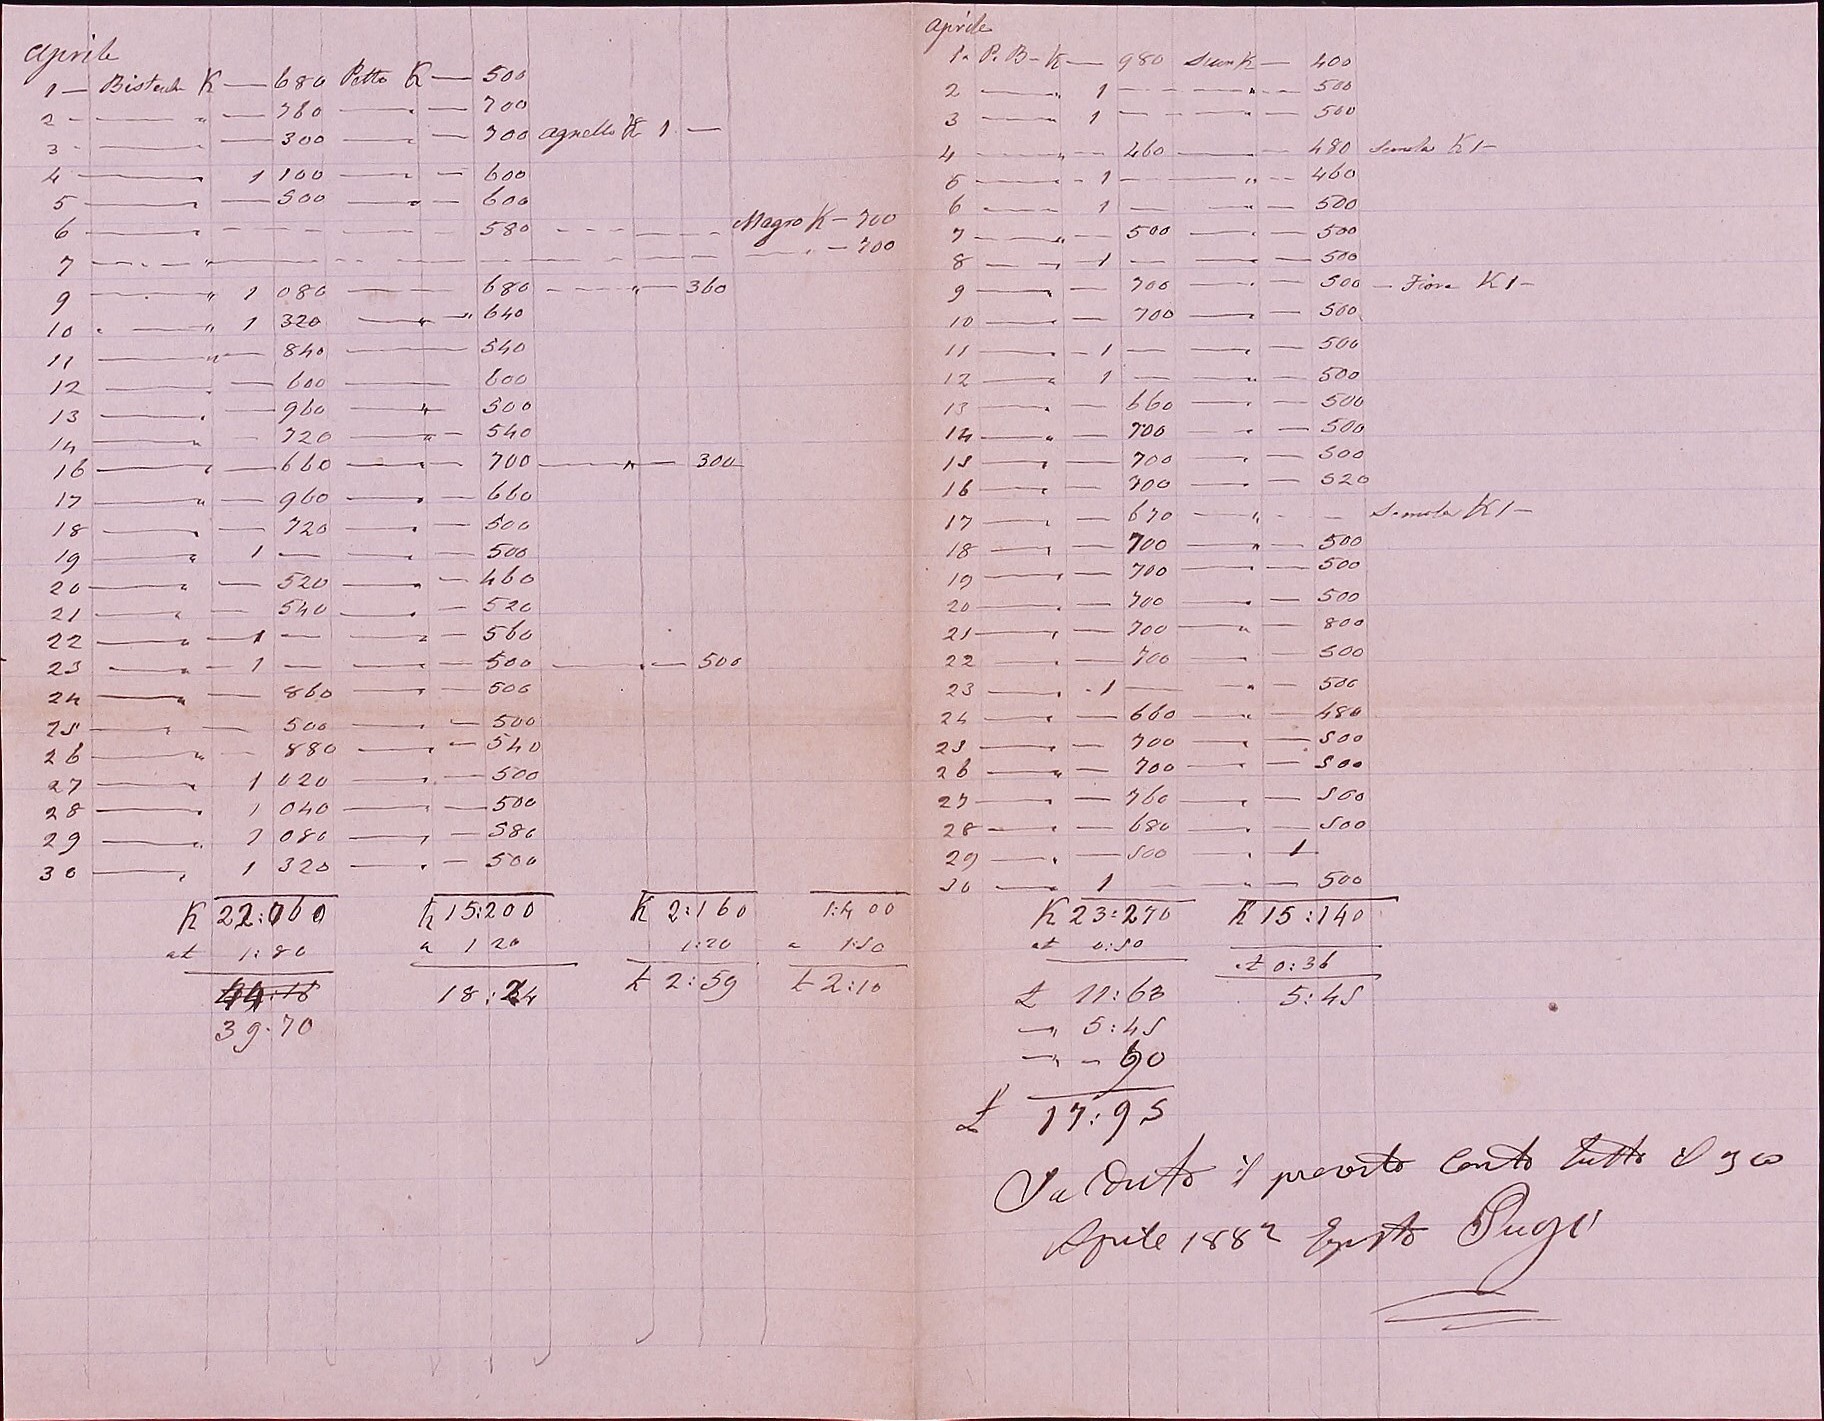 Aprile
1 — Bistecche K — 680 Petto K — 500
2 - — " — 760 — — 700
3 - — — 300 — — 700 agnello K 1 —
4 — " 1 100 — — 600
5 — " — 500 — " — 600
6 — " - - - 580 - - - - Magro K — 700
7 — " — — — — — — " — 700
9 — " 1 080 — — 680 — " — 360
10 — " 1 320 — " — 640
11 — " — 840 — 540
12 — — 600 — 600
13 — " — 960 — " — 500
14 — " — 720 — " — 540
16 — " — 660 — " — 700 — " — 300
17 — " — 960 — " — 660
18 — " — 720 — " — 500
19 — " 1 — — " — 500
20 — " — 520 — " — 460
21 — " — 540 — " — 520
22 — " — 1 — — " — 560
23 — " — 1 — — " — 500 — " — 500
24 — " — 860 — " — 500
25 — " — 500 — " — 500
26 — " — 880 — " — 540
27 — " 1 020 — " — 500
28 — " 1 040 — " — 500
29 — " 1 080 — " — 580
30 — " 1 320 — " — 500
K 22:060 K 15:200 K 2:160 1:400
at 1:80 a 1 20 1:20 a 1:50
44:18 18:24 £ 2:59 £ 2:10
39.70
Aprile
1. P. B — K — 980 K — 400
2 — " 1 — — " — 500
3 — " 1 — — " — 500
4 — " — 460 — — 480 Semola K 1 —
5 — " — 1 — — " — 460
6 — " 1 — " — 500
7 — " — 500 — " — 500
8 — " 1 — " — 500
9 — " — 700 — " — 500 — Fiore K 1 —
10 — " — 700 — " — 500
11 — " — 1 — — " — 500
12 — " 1 — — " — 500
13 — " — 660 — " — 500
14 — " — 700 — " — 500
15 — " — 700 — " — 500
16 — " — 700 — " — 520
17 — " — 670 — " - — Semola K 1 —
18 — " — 700 — " — 500
19 — " — 700 — — 500
20 — " — 700 — " — 500
21 — " — 700 — " — 800
22 — " — 700 — " — 500
23 — " - 1 — " — 500
24 — " — 660 — " — 480
25 — " — 700 — " — 500
26 — " — 700 — " — 500
27 — " — 760 — " — 500
28 — " — 680 — " — 500
29 — " — 500 " 1
30 — " 1 — — " — 500
K 23:270 K 15:140
at 0:50 at 0:36
£ 11:63 5:45
—" 5:45
—" — 90
£ 17:95
Saldato il presente Conto tutto il 30
Aprile 1882 Egisto Pugi